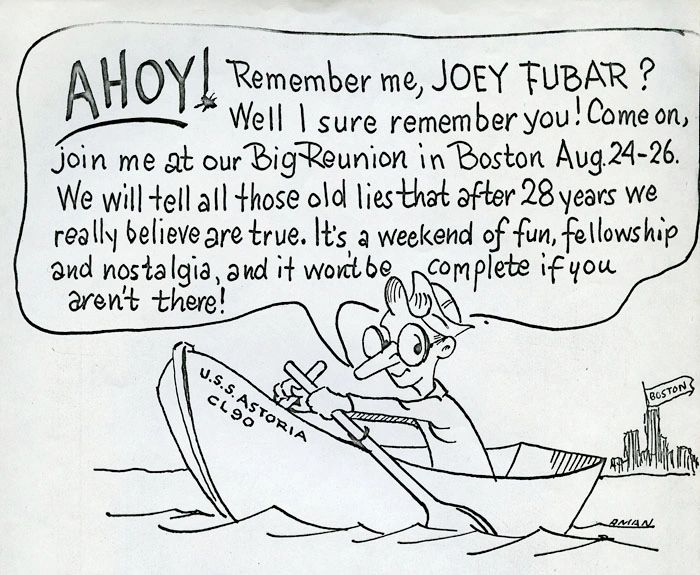 AHOY! Remember me, JOEY FUBAR?
Well I sure remember you! Come on,
join me at our Big Reunion in Boston Aug. 24-26.
We will tell all those old lies that after 28 years we
really believe are true. It's, a weekend of fun, fellowship
and nostalgia, and it won't be complete if you
aren't there!
U.S.S. ASTORIA
CL90
BOSTON
AMAN